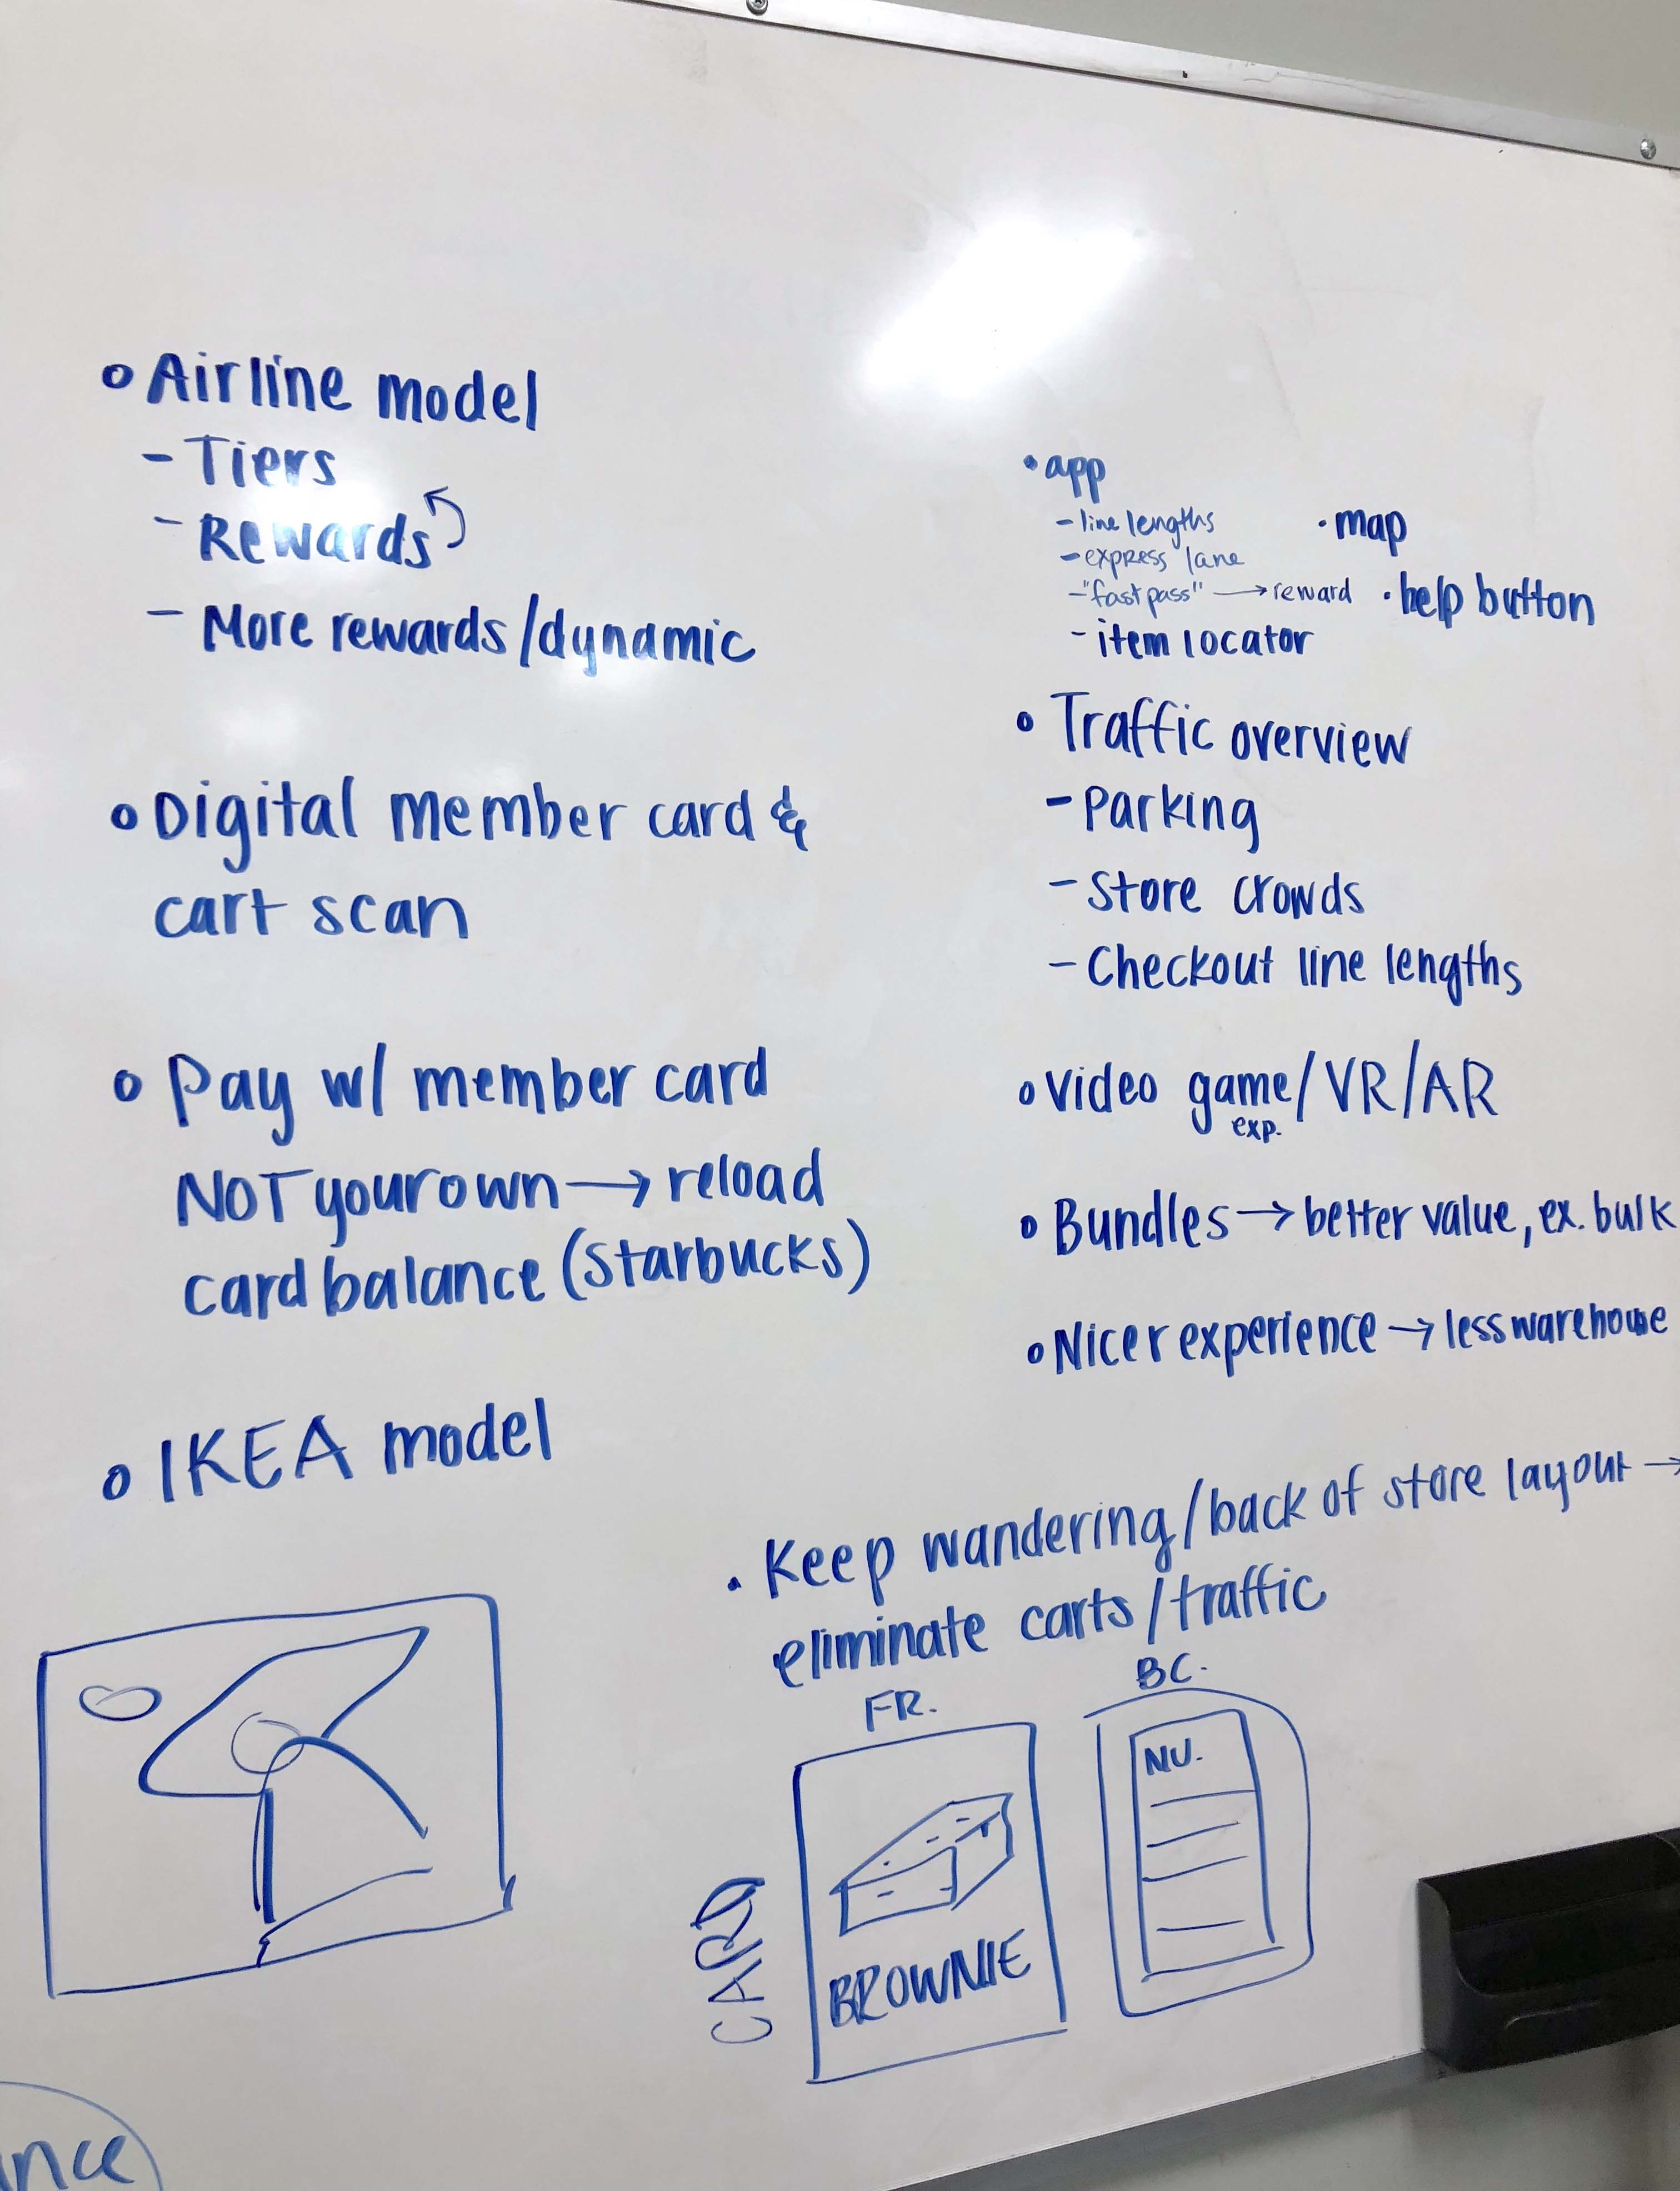 Airline model
- Tiers
- Rewards
- More rewards/dynamic
Digital member card &
cart scan
Pay w/ member card
NOT your own → reload
card balance (Starbucks)
IKEA model
• app
- line lengths
- express lane
- "fastpass" → reward
- item locator
• map
• help button
Traffic overview
- Parking
- Store crowds
- Checkout line lengths
Video game/VR/AR
exp.
Bundles → better value, ex. bulk
Nicer experience → less warehouse
• Keep wandering/back of store layout →
eliminate carts/traffic
FR.
BC.
CARD
BROWNIE
NU.